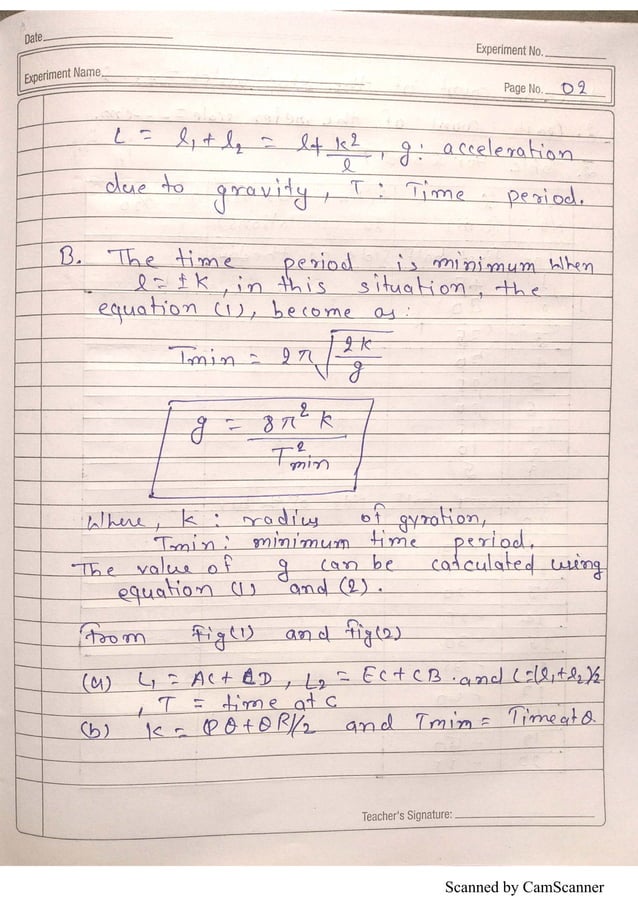 Date
Experiment No.
Experiment Name
Page No. 02
L = l1 + l2 = l + k²/l, g: acceleration
due to gravity, T: Time period.
B. The time period is minimum when
l = ±K, in this situation, the
equation (1), become as:
Tmin = 2π √(2K/g)
g = 8π² K / T²min
Where, k: radius of gyration,
Tmin: minimum time period.
The value of g can be calculated using
equation (1) and (2).
from Fig(1) and fig(2)
(a) L1 = AC + CD, L2 = EC + CB. and L=(l1+l2)/2
, T = time at C
(b) K = PQ + QR/2 and Tmin = Time at Q.
Teacher's Signature:
Scanned by CamScanner